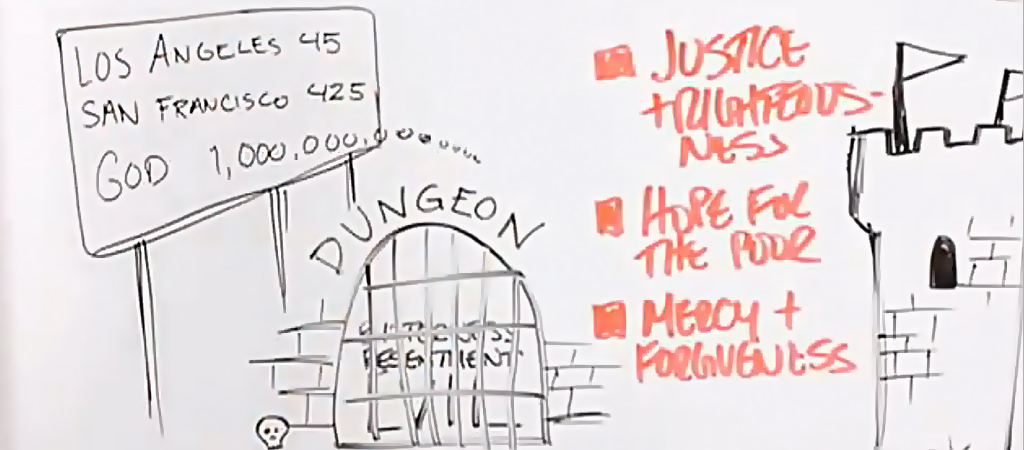 LOS ANGELES 45
SAN FRANCISCO 425
GOD 1,000,000,000
DUNGEON
BITTERNESS
RESENTMENT
JUSTICE
+ RIGHTEOUS-
NESS
HOPE FOR
THE POOR
MERCY +
FORGIVENESS